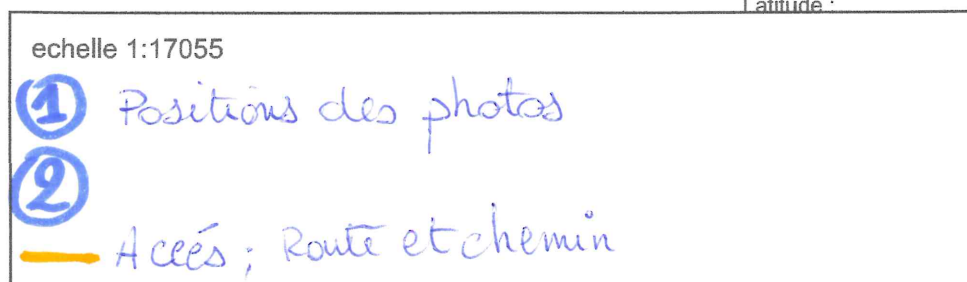 Latitude :
echelle 1:17055
1 Positions des photos
2
Accés ; Route et chemin